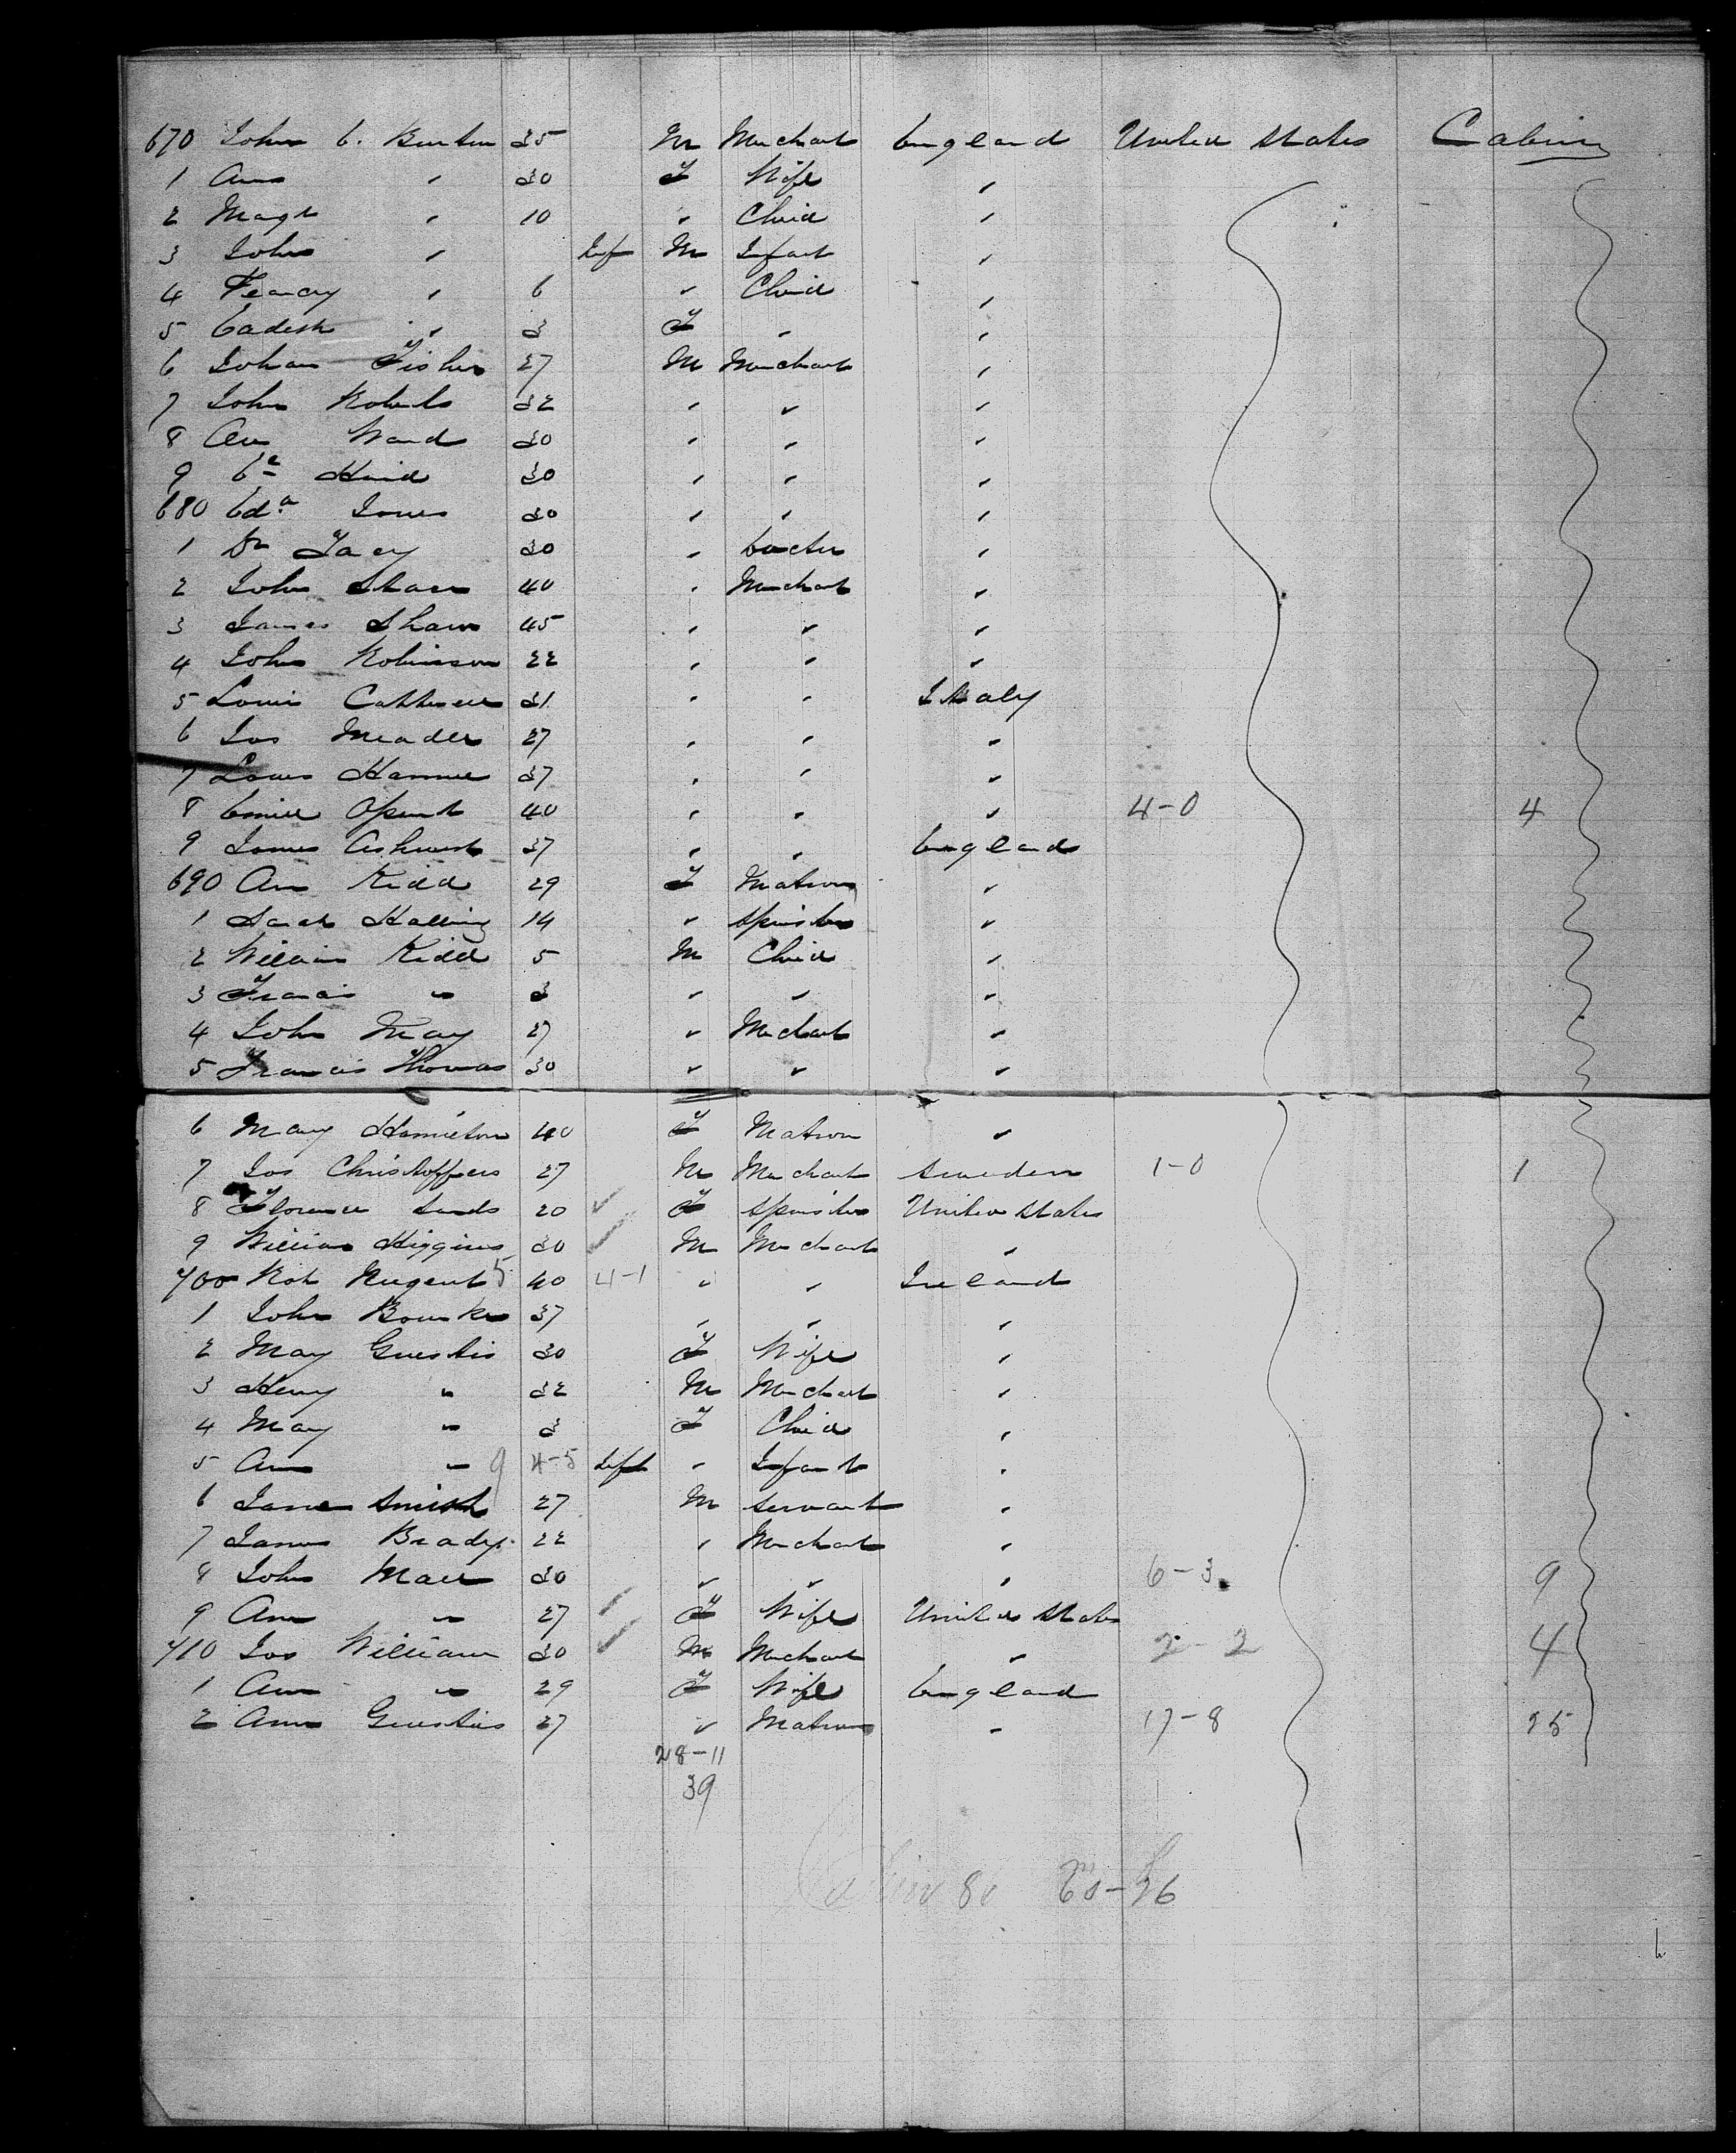 670 John E. Burton 35 M Merchant England United States Cabin
1 Ann " 30 F Wife "
2 Magt " 10 " Child "
3 John " Inf M Infant "
4 " 6 " Child "
5 " 3 F " "
6 Johan Fisher 27 M Merchant "
7 John Roberts 32 " " "
8 Ward 30 " " "
9 30 " " "
680 Edw Jones 30 " " "
1 Dr 30 " Doctor "
2 John 40 " Merchant "
3 James Shaw 45 " " "
4 John Robinson 22 " " "
5 Louis 31 " " Italy
6 Jos Meader 27 " " "
7 Louis 37 " " "
8 Emile 40 " " " 4-0 4
9 James Ashurst 37 " " England
690 Ann Kidd 29 F Matron "
1 Sarah 14 " Spinster "
2 William Kidd 5 M Child "
3 Francis " 3 " " "
4 John May 27 " Merchant "
5 Francis Thomas 30 " " "
6 Mary Hamilton 40 F Matron "
7 Jos Christoffers 27 M Merchant Sweden 1-0 1
8 Florence Sands 20 ✓ F Spinster United States
9 William Higgins 30 ✓ M Merchant "
700 Robt Nugent 5 40 4-1 " " Ireland
1 John Bourke 37 " " "
2 Mary 30 F Wife "
3 Henry " 32 M Merchant "
4 Mary " 3 F Child "
5 Ann " 9 4-5 Inft " Infant "
6 Jane Smith 27 M Servant "
7 James Brady 22 " Merchant "
8 John 30 " " " 6-3 9
9 Ann " 27 ✓ F Wife United States
710 Jos William 30 ✓ M Merchant " 2-2 4
1 Ann " 29 F Wife England
2 Ann 27 " Matron " 17-8 25
28-11
39
Cabin 80